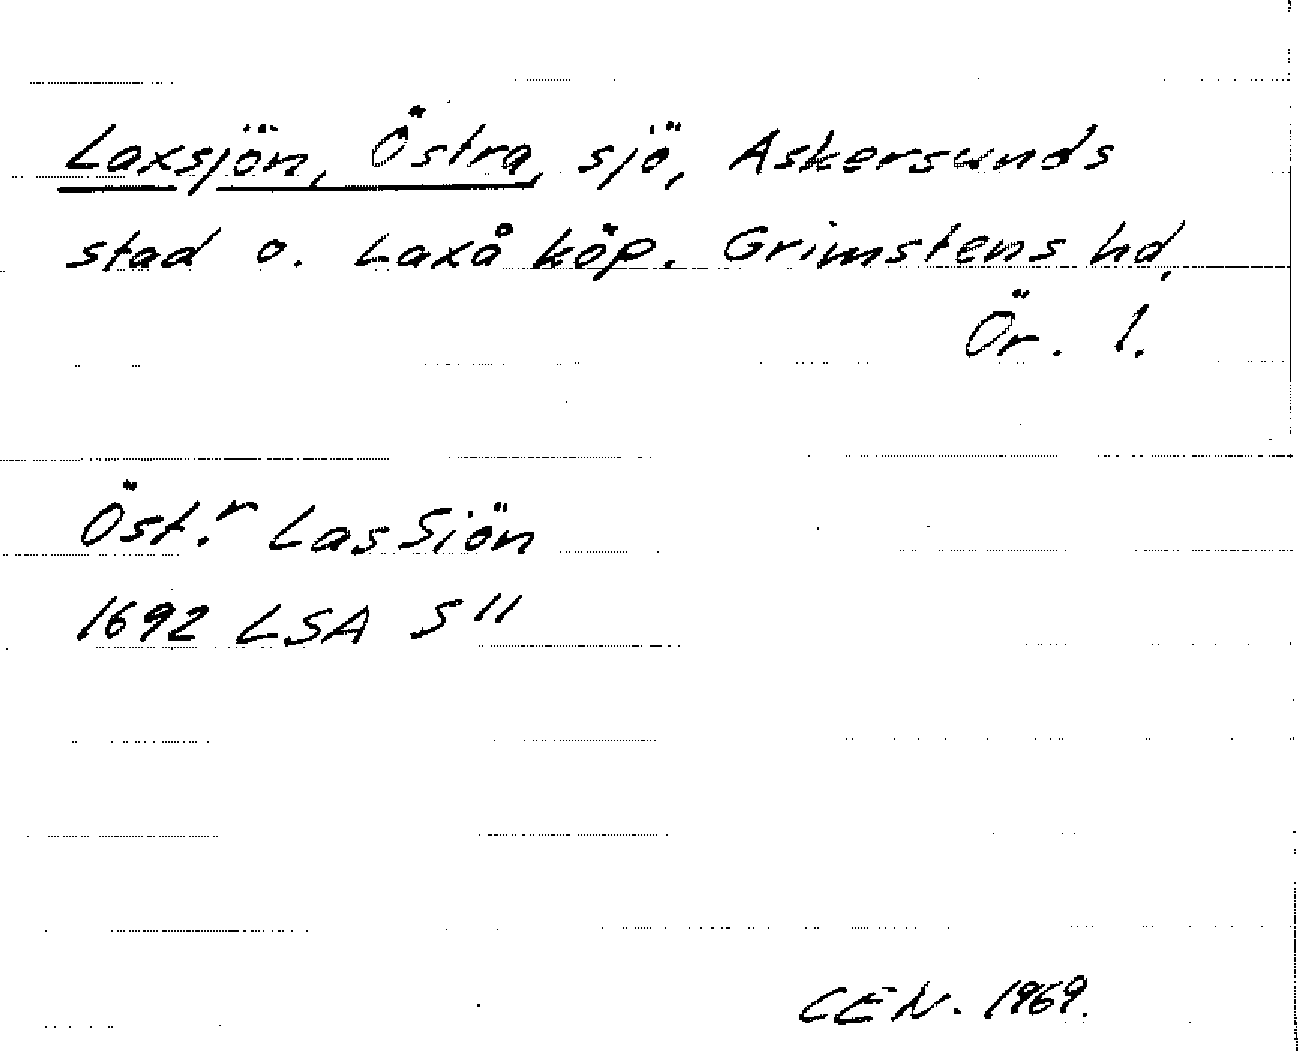 Laxsjön, Östra, sjö, Askersunds
stad o. Laxå köp. Grimstens hd,
Ör. l.
Öst.r LasSiön
1692 LSA S 11
CEN. 1969.